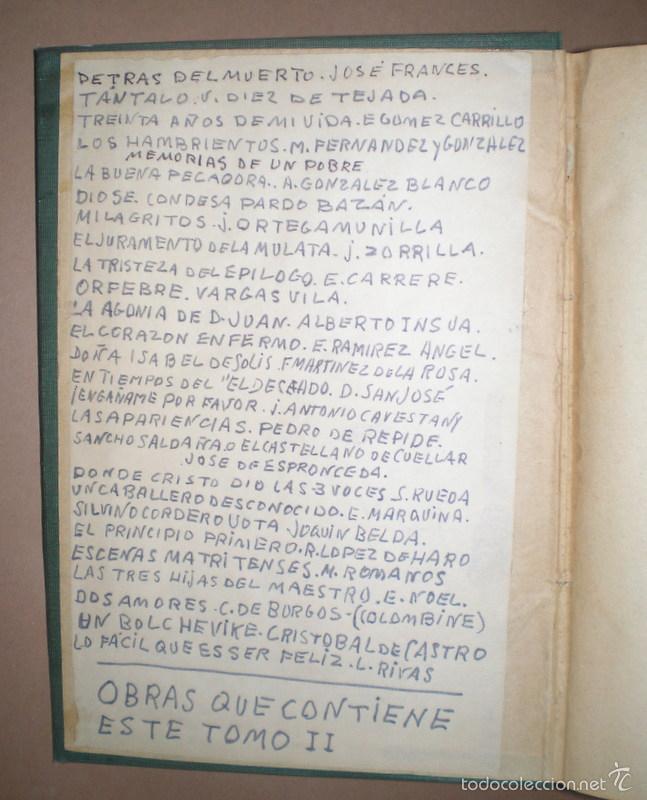 DETRAS DEL MUERTO. JOSÉ FRANCES.
TÁNTALO. V. DIEZ DE TEJADA.
TREINTA AÑOS DE MI VIDA. E GOMEZ CARRILLO
LOS HAMBRIENTOS. M. FERNANDEZ y GONZALEZ
MEMORIAS DE UN POBRE
LA BUENA PECADORA. A. GONZALEZ BLANCO
DIOSE. CONDESA PARDO BAZÁN.
MILAGRITOS. J. ORTEGA MUNILLA
EL JURAMENTO DE LA MULATA. J. ZORRILLA.
LA TRISTEZA DEL EPILOGO. E. CARRERE.
ORFEBRE. VARGAS VILA.
LA AGONIA DE D. JUAN. ALBERTO INSUA.
EL CORAZON ENFERMO. E. RAMIREZ ANGEL.
DOÑA ISABEL DE SOLIS. F MARTINEZ DE LA ROSA.
EN TIEMPOS DEL "EL DESEADO. D. SAN JOSÉ
¡ENGAÑAME POR FAVOR. J. ANTONIO CAVESTANY
LAS APARIENCIAS. PEDRO DE REPIDE.
SANCHO SALDAÑA. O EL CASTELLANO DE CUELLAR
JOSE DE ESPRONCEDA.
DONDE CRISTO DIO LAS 3 VOCES S. RUEDA
UN CABALLERO DESCONOCIDO. E. MARQUINA.
SILVINO CORDERO VOTA JOQUIN BELDA.
EL PRINCIPIO PRIMERO. R. LOPEZ DE HARO
ESCENAS MATRITENSES. M. ROMANOS
LAS TRES HIJAS DEL MAESTRO. E. NOEL.
DOS AMORES. C. DE BURGOS - (COLOMBINE)
UN BOLCHEVIKE. CRISTOBAL DE CASTRO
LO FÁCIL QUE ES SER FELIZ. L. RIVAS
OBRAS QUE CONTIENE
ESTE TOMO II
todocoleccion.net